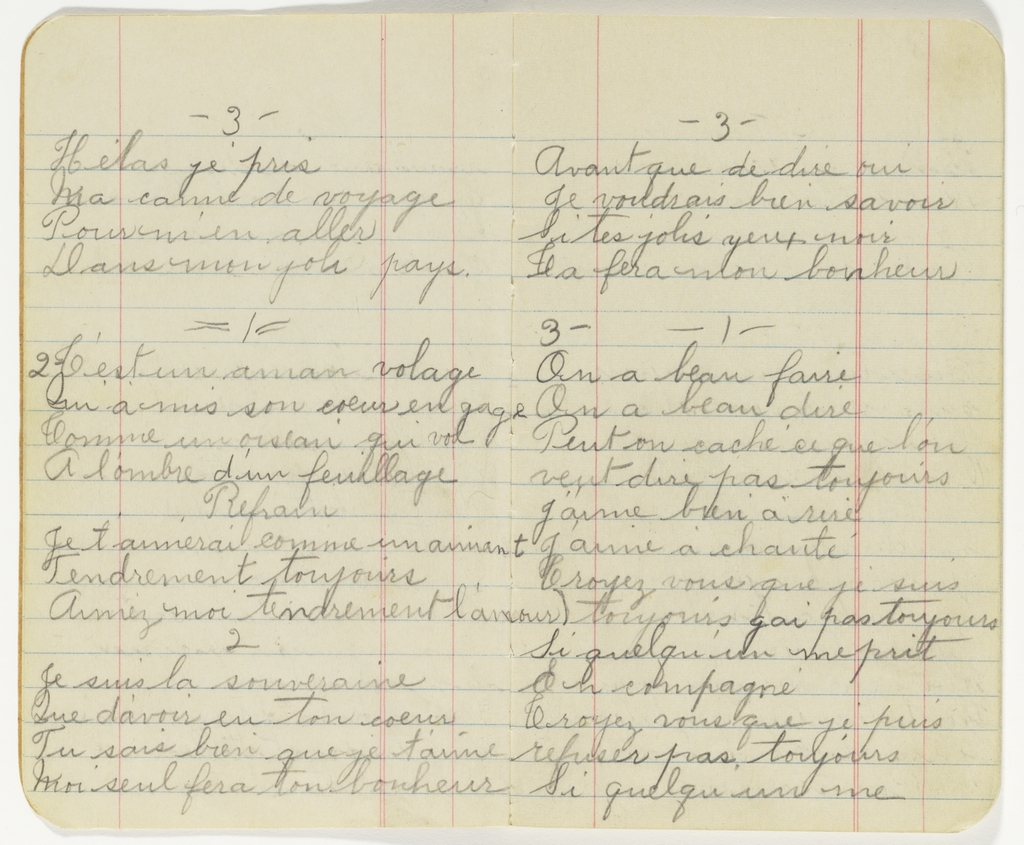 - 3 -
Hélas je pris
Ma canne de voyage
Pour m'en aller
Dans mon joli pays.
= 1 =
2- C'est un aman volage
Qui a mis son coeur en gage
Comme un oiseau qui vol
A l'ombre d'un feuillage
Refrain
Je t'aimerai comme un aimant
Tendrement toujours
Aimez moi tendrement l'amour)
2
Je suis la souveraine
Que d'avoir eu ton coeur
Tu sais bien que je t'aime
Moi seul fera ton bonheur
- 3 -
Avant que de dire oui
Je voudrais bien savoir
Si tes jolis yeux noir
Ta fera mon bonheur
3 - - 1 -
On a beau faire
On a beau dire
Peut on caché ce que l'on
veut dire pas toujours
j'aime bien a rire
j'aime a chanté
Croyez vous que je suis
toujours gai pas toujours
Si quelqu'un me prit
En compagne
Croyez vous que je puis
refuser pas toujours
Si quelqu'un me